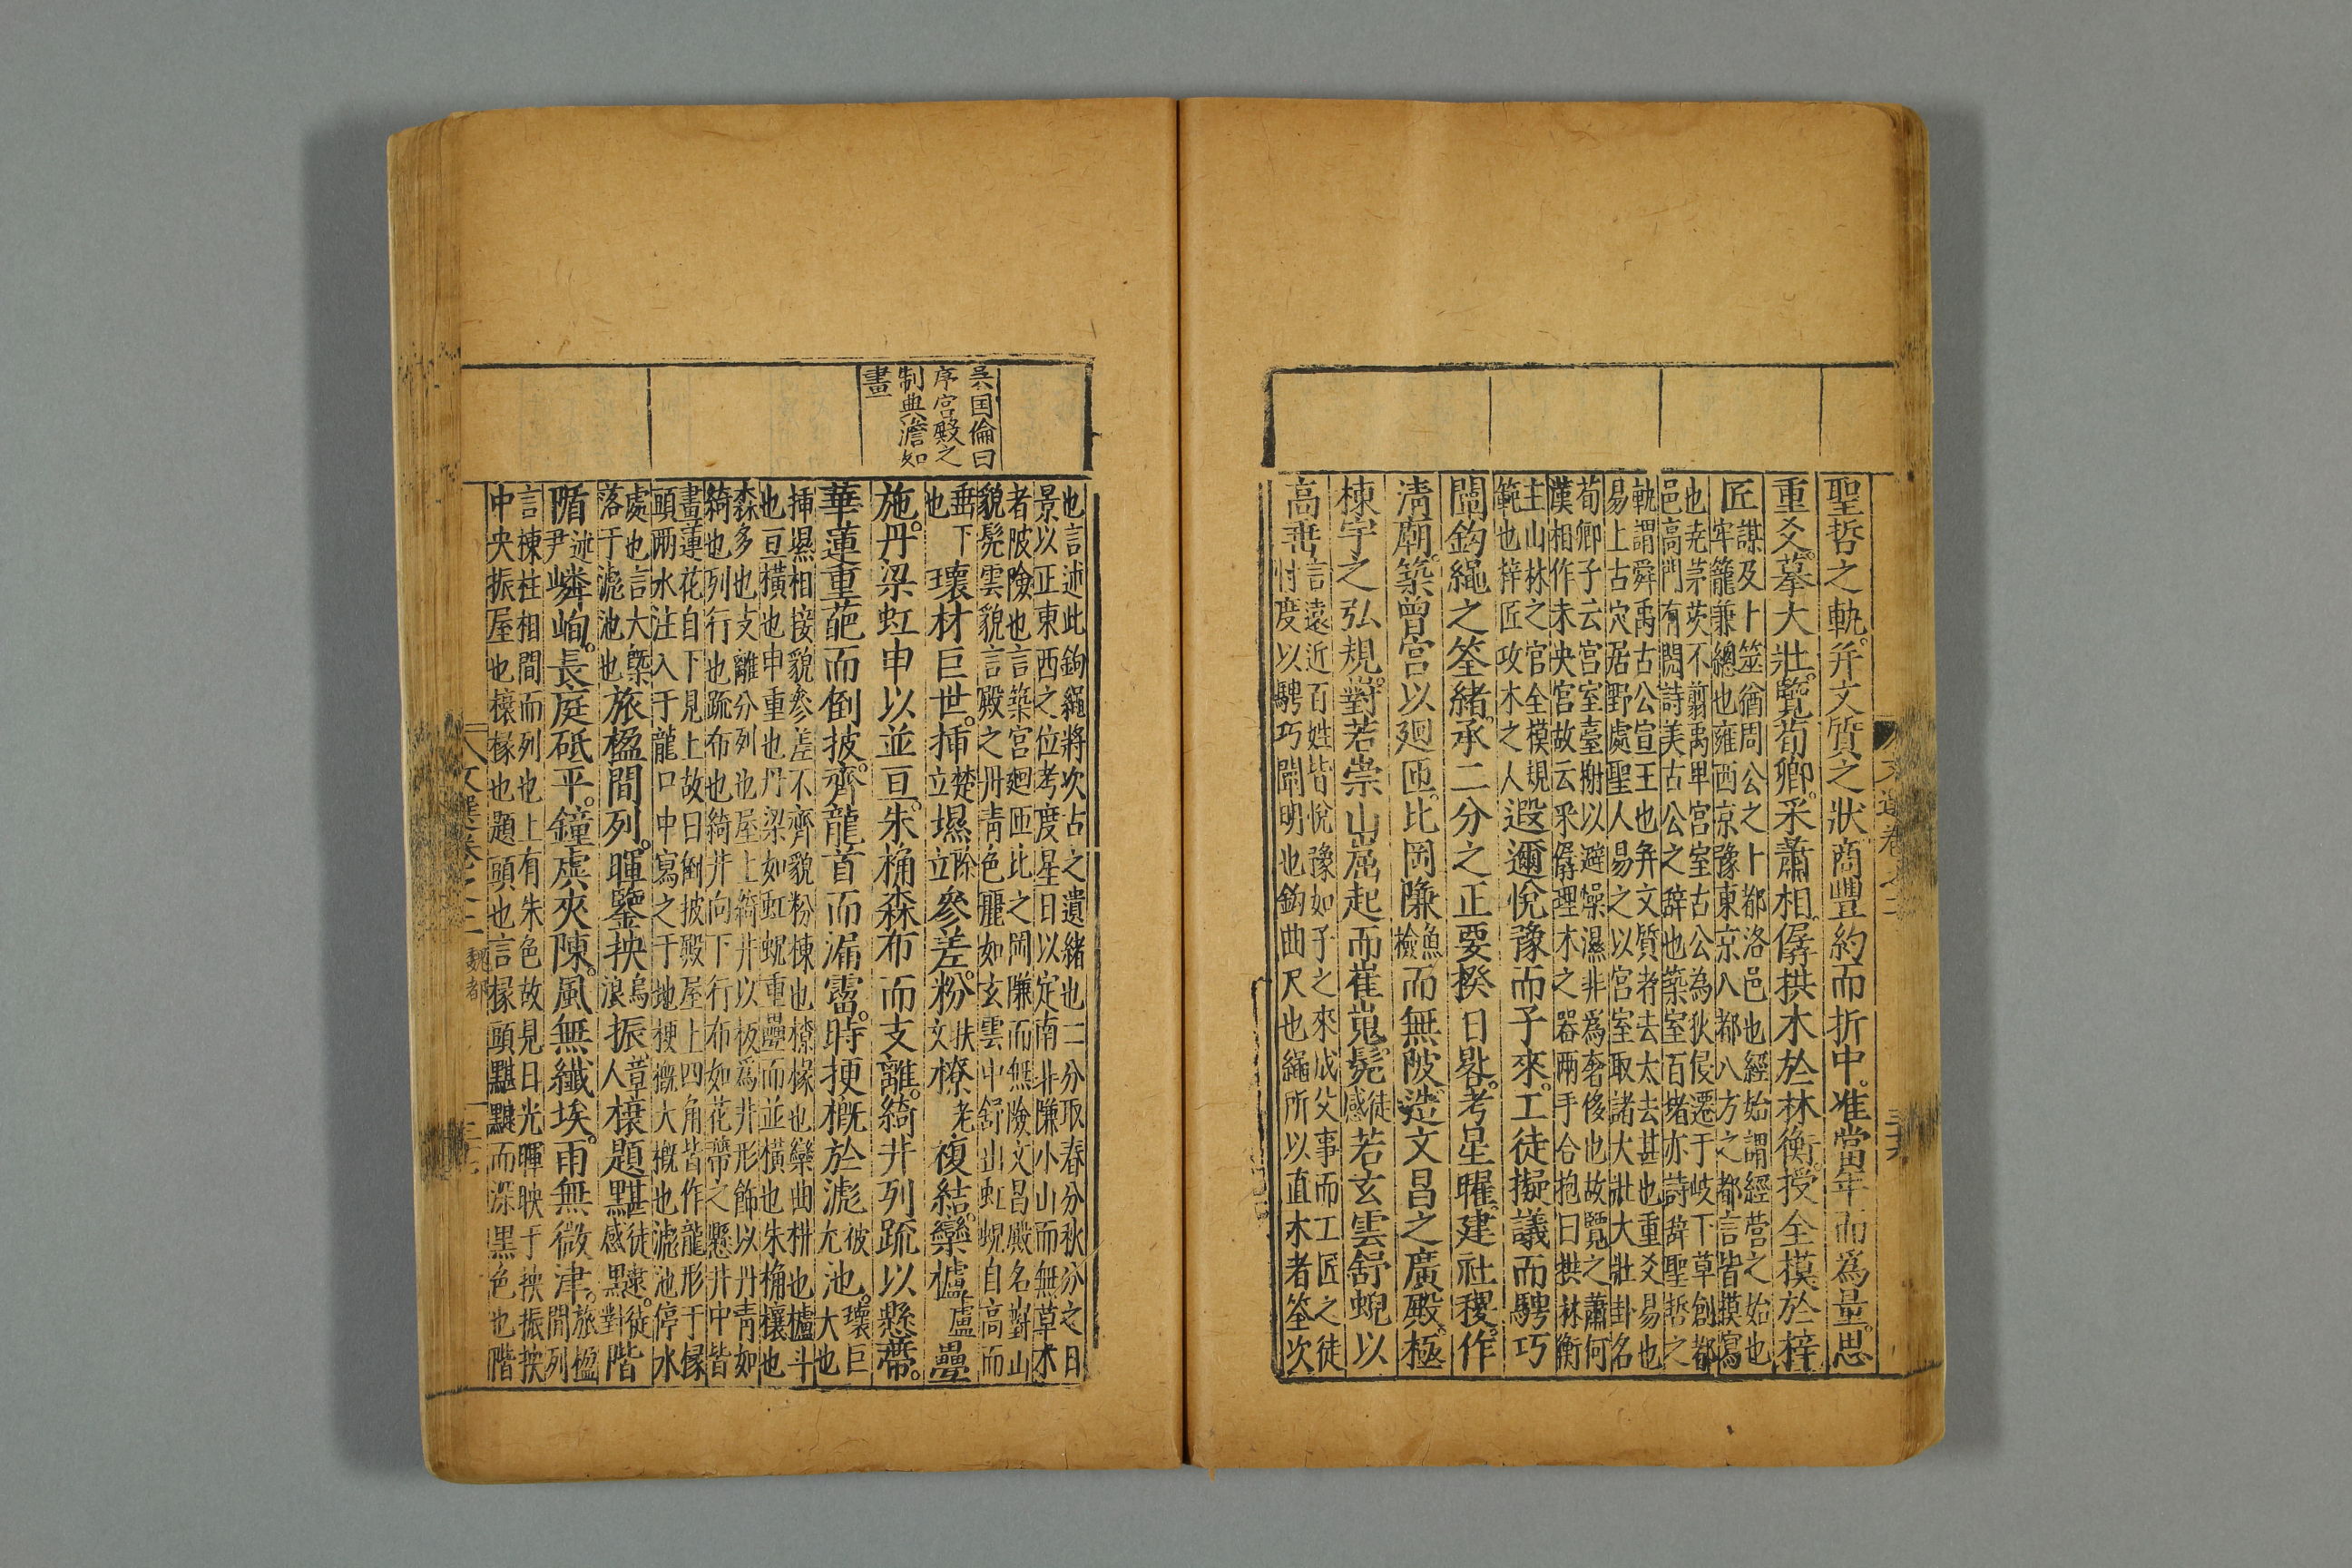 聖哲之軌。并文質之狀商豐約而折中。准當年而爲量。思
重爻。摹大壯。覽荀卿。采蕭相。僝拱木於林衡。授全模於梓
匠
謀及卜筮猶周公之卜都洛邑也經始謂經營之始也
牢籠兼總也雍西京豫東京八都八方之都言皆摸寫
也尭茅茨不翦禹卑宮室古公為狄侵遷于岐下草創都
邑高門有閌詩美古公之辞也築室百堵亦詩辞聖哲之
軌謂舜禹古公宣王也并文質者去太去甚也重爻易也
易上古穴居野處聖人易之以宮室取諸大壯大壯卦名
荀卿子云宮室臺榭以避燥濕非爲奢侈也故覽之蕭何
漢相作未央宮故云采僝理木之器兩手合抱曰拱林衡
主山林之官全模規
範也梓匠攻木之人
遐邇悅豫而子來。工徒擬議而騁巧
闡鈎繩之筌緒。承二分之正要揆日晷。考星曜。建社稷。作
清廟。築曾宮以廻匝。比岡隒
魚
檢
而無陂。造文昌之廣殿。極
棟宇之弘規。對若崇山崛起而崔嵬。髧
徒
感
若玄雲舒蜺以
高垂
言遠近百姓皆悅豫如子之來成父事而工匠之徒
忖度以騁巧闡明也鈎曲尺也繩所以直木者筌次
也言述此鉤繩將次古之遺緒也二分取春分秋分之日
景以正東西之位考度星日以定南北隒小山而無草木
者陂險也言築宮廻匝比之岡隒而無險文昌殿名對山
貌髧雲貌言殿之丹青色麗如玄雲中舒出虹蜺自高而
垂下
也
瓌材巨世。揷
楚
立
㙷
除
立
參差。粉
扶
文
橑
老
複結。欒櫨
盧
疊
施。丹梁虹申以並亘。朱桷森布而支離。綺井列疏以懸蔕。
華蓮重葩而倒披。齊龍首而漏霤。時梗槪於滮
被
尤
池。
瓌巨
大也
揷㙷相接貌參差不齊貌粉棟也橑椽也欒曲枅也櫨斗
也亘橫也申重也丹梁如虹蜺重疊而並橫也朱桷穰也
森多也支離分列也屋上綺井以板爲井形飾以丹青如
綺也列行也疏布也綺井向下行布如花蔕之懸井中皆
畫蓮花自下見上故曰倒披殿屋上四角皆作龍形于椽
頭雨水注入于龍口中寫之于地梗槪大槪也滮池停水
處也言大槩
落于滮池也
旅楹間列。暉鑒抰
烏
浪
振
章
人
榱題黮
徒
感
䨴
徒
對
階
䧑
述
尹
嶙峋。長庭砥平。鐘虡夾陳。風無纖埃。雨無微津。
旅楹
間列
言棟柱相間而列也上有朱色故見日光暉映于抰振抰
中央振屋也榱椽也題頭也言椽頭黮䨴而深黒色也階
吳国倫曰
序宮殿之
制典澹如
畫
文選卷之二
魏都